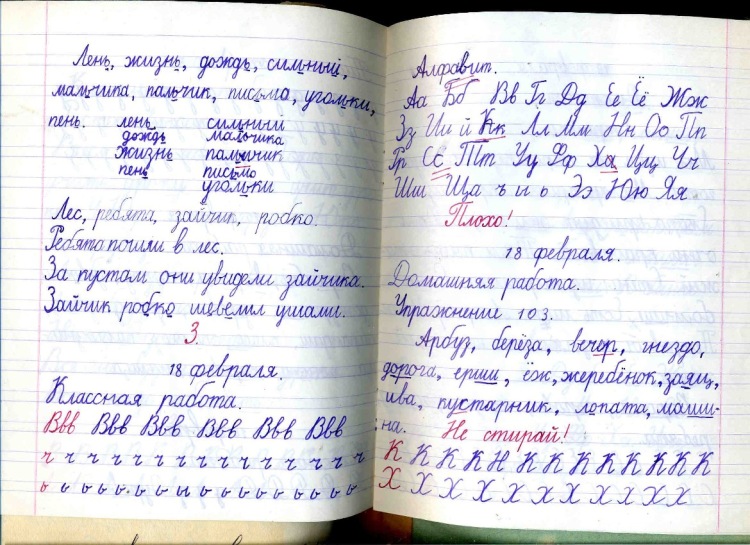 Лень, жизнь, дождь, сильный,
мальчика, пальчик, письма, угольки,
пень. лень сильный
дождь мальчика
жизнь пальчик
пень письмо
угольки
Лес, ребята, зайчик, робко.
Ребята пошли в лес.
За пустом они увидели зайчика.
Зайчик робко шевелил ушами.
3.
18 февраля.
Классная работа.
Ввв Ввв Ввв Ввв Ввв Ввв
ч ч ч ч ч ч ч ч ч ч ч ч ч ч
Алфавит.
Аа Бб Вв Гг Дд Ее Ёё Жж
Зз Ии й Кк Лл Мм Нн Оо Пп
Рр Сс Тт Уу Фф Хх Цц Чч
Шш Щщ ъ ы ь Ээ Юю Яя
Плохо!
18 февраля.
Домашняя работа.
Упражнение 103.
Арбуз, берёза, вечер, гнездо,
дорога, ерши, ёж, жеребёнок, заяц,
ива, пустарник, лопата, маши-
на. Не стирай!
К К К К Н К К К К К К К К
Х Х Х Х Х Х Х Х Х Х Х